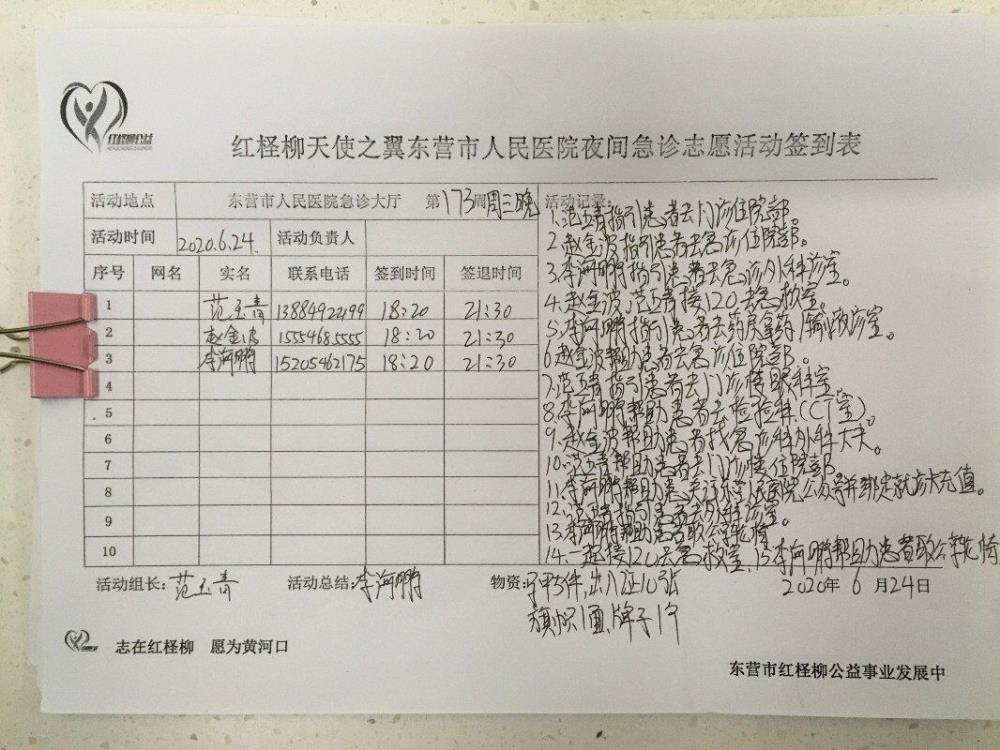 红柽柳公益
红柽柳天使之翼东营市人民医院夜间急诊志愿活动签到表
活动地点 东营市人民医院急诊大厅 第173周周三晚 活动记录:
活动时间 2020.6.24. 活动负责人
序号 网名 实名 联系电话 签到时间 签退时间
1 范玉青 13884922499 18:20 21:30
2 赵金波 15554685555 18:20 21:30
3 李河鹏 15205462175 18:20 21:30
4
5
6
7
8
9
10
1.范玉青指引患者去门诊住院部。
2.赵金波指引患者去急诊住院部。
3.李河鹏指引患者去急诊外科诊室。
4.赵金波,范玉青接120去急救室。
5.李河鹏指引患者去药房拿药,输液诊室。
6.赵金波帮助患者去急诊住院部。
7.范玉青指引患者去门诊楼眼科室。
8.李河鹏帮助患者去检验科(CT室)。
9.赵金波帮助患者找急诊科外科大夫。
10.范玉青帮助患者去门诊楼住院部。
11.李河鹏帮助患者关注东营人民医院公众号并绑定就诊卡充值。
12.范玉青指引患者去外科诊室。
13.李河鹏帮助患者取公享轮椅
14.一起接120去急救室,15.李河鹏帮助患者取公享轮椅
活动组长:范玉青 活动总结:李河鹏 物资:马甲5件,出入证10张
旗帜1面,牌子1个
2020年6月24日
志在红柽柳 愿为黄河口
东营市红柽柳公益事业发展中